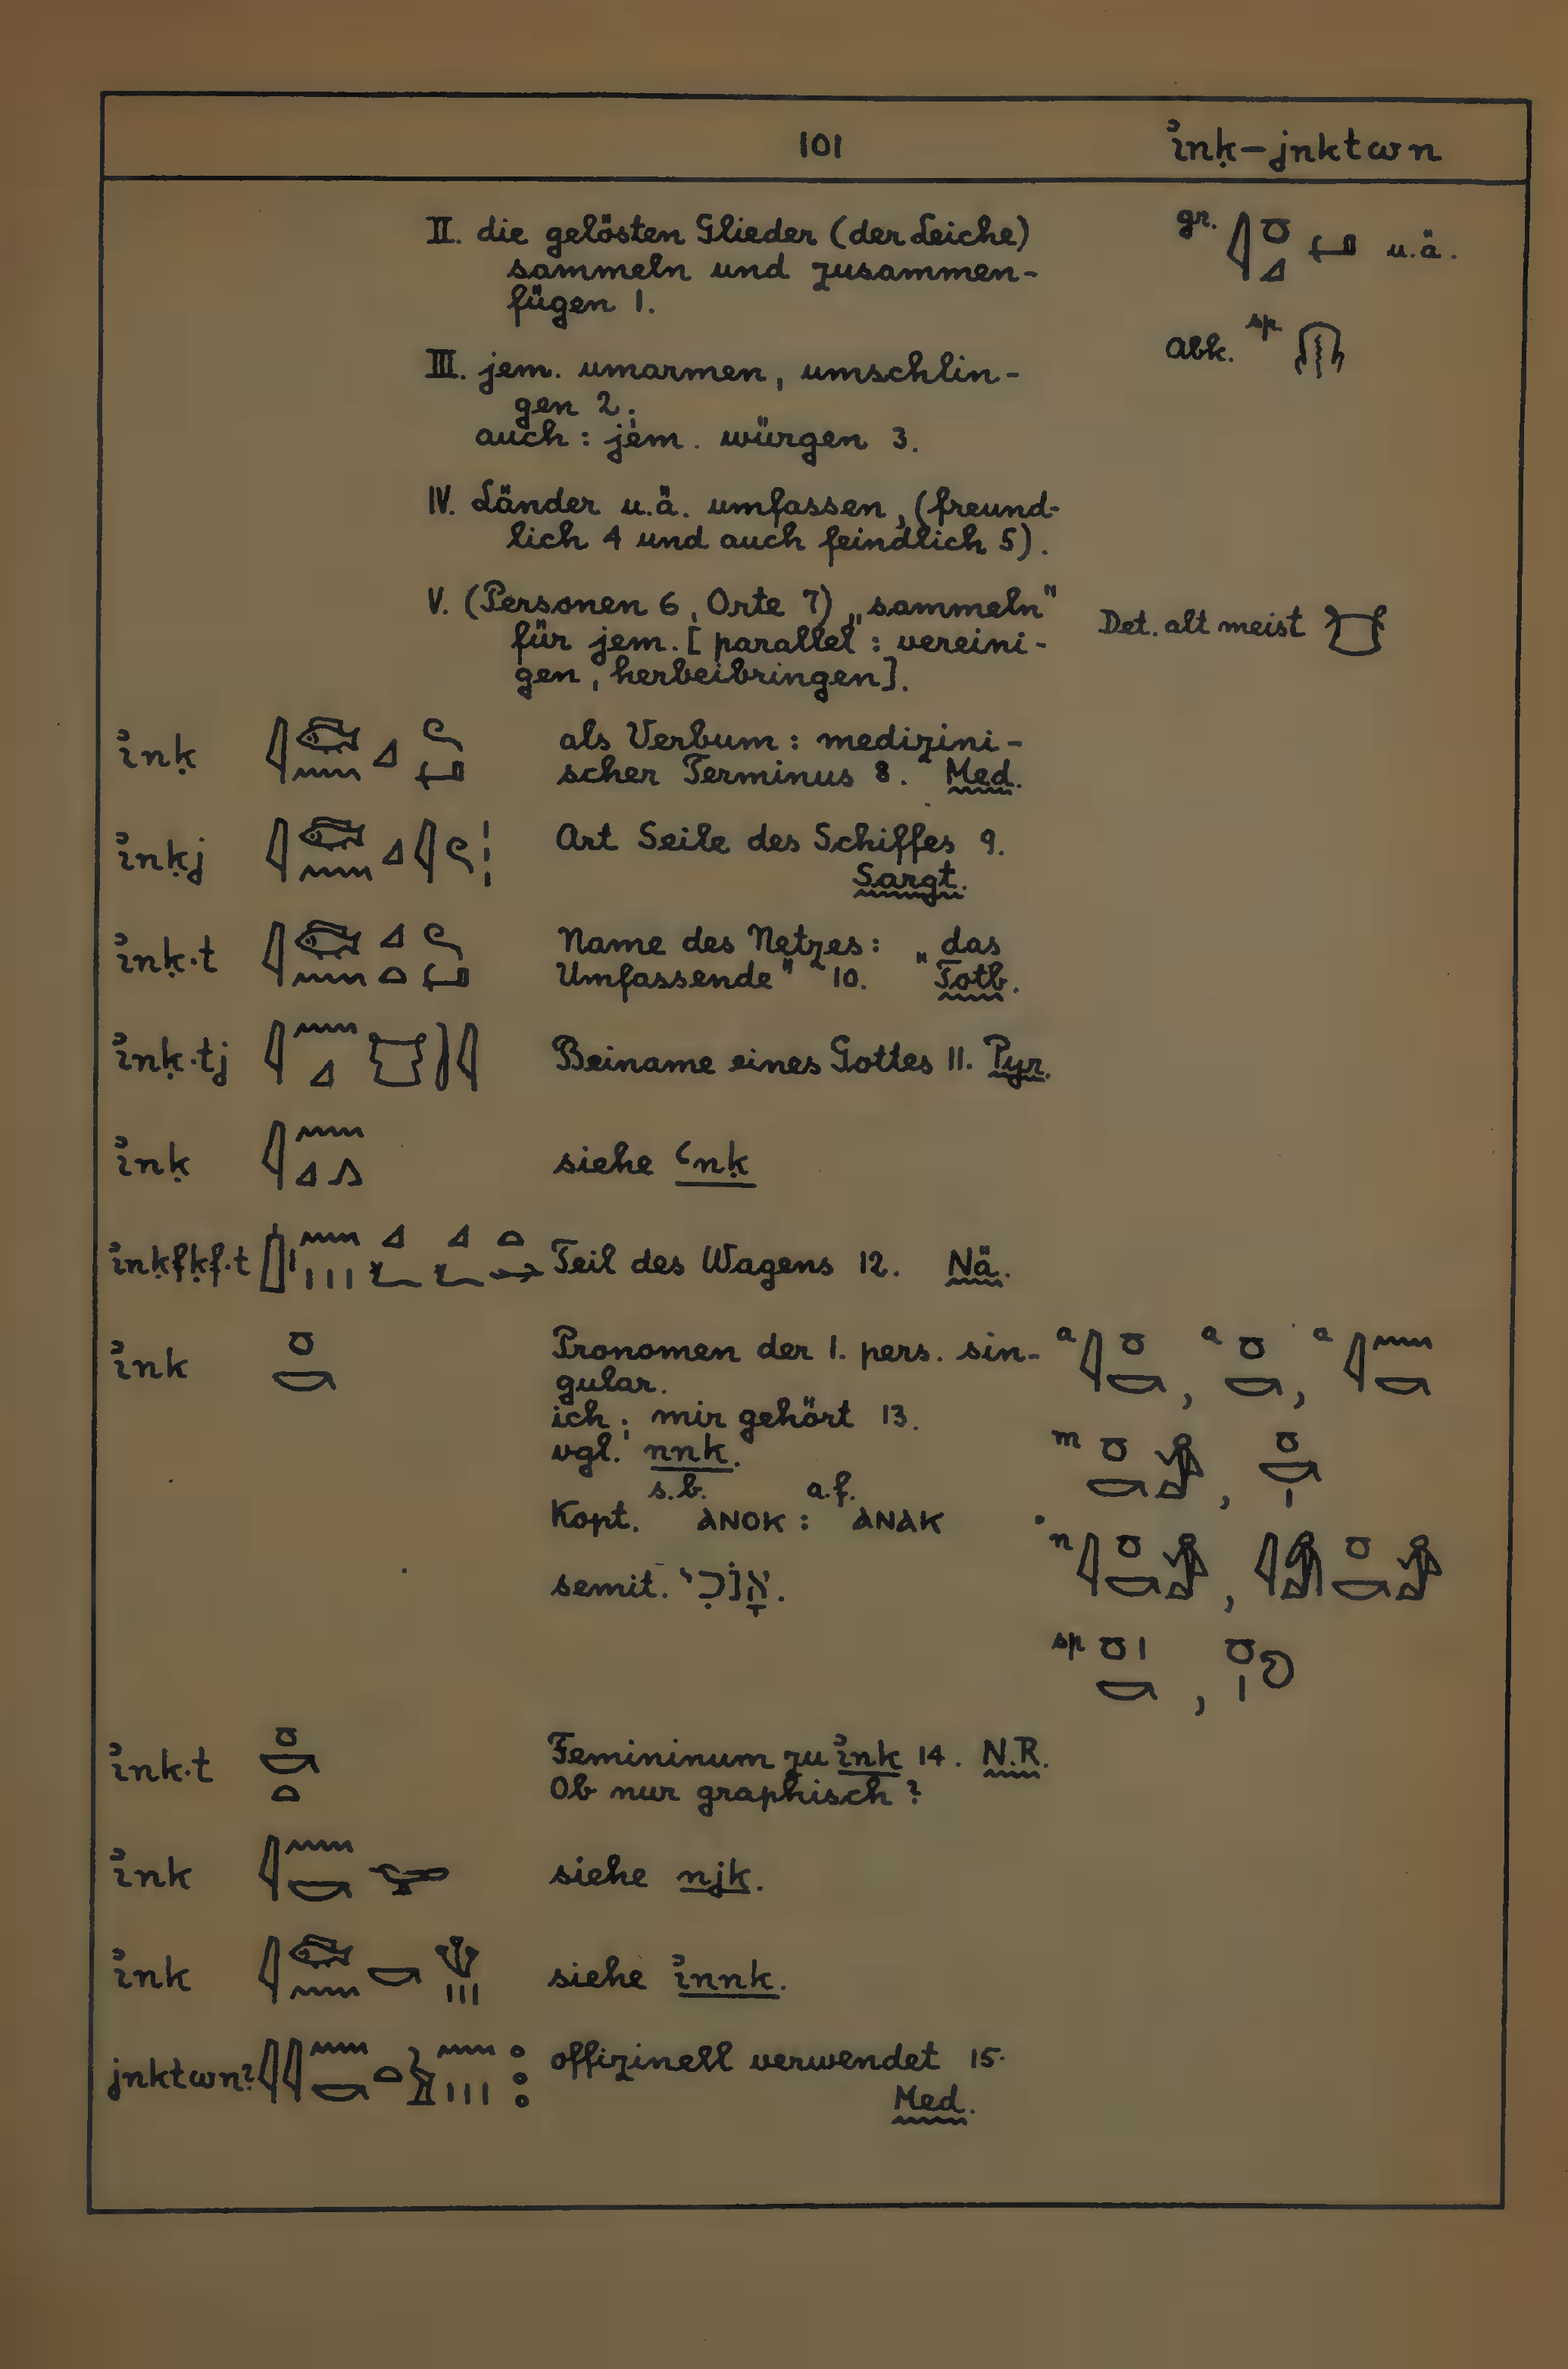 101 ꞽnḳ–jnktwn
II. die gelösten Glieder (der Leiche)
sammeln und zusammen-
fügen 1.
gr. 𓇋𓏌𓈎𓂡 u.ä.
Abk. sp.
III. jem. umarmen, umschlin-
gen 2;
auch: jem. würgen 3.
IV. Länder u.ä. umfassen, (freund-
lich 4 und auch feindlich 5).
V. (Personen 6, Orte 7) „sammeln"
für jem. [parallel: vereini-
gen, herbeibringen].
Det. alt meist
ꞽnḳ 𓇋𓆛𓈖𓈎𓍢𓂡 als Verbum: medizini-
scher Terminus 8. Med.
ꞽnḳj 𓇋𓆛𓈖𓈎𓇋𓍢𓏥 Art Seile des Schiffes 9.
Sargt.
ꞽnḳ·t 𓇋𓆛𓈖𓈎𓏏𓍢𓂡 Name des Netzes: „das
Umfassende" 10. Totb.
ꞽnḳ·tj 𓇋𓈖𓈎 Beiname eines Gottes 11. Pyr.
ꞽnḳ 𓇋𓈖𓈎𓂻 siehe ꜥnḳ
ꞽnḳfḳf·t Teil des Wagens 12. Nä.
ꞽnk 𓏌𓎡 Pronomen der 1. pers. sin-
gular.
ich; mir gehört 13.
vgl. nnk.
s.b. a.f.
Kopt. ⲀⲚⲞⲔ : ⲀⲚⲀⲔ
semit. אָנֹכִי.
a 𓇋𓏌𓎡, a 𓏌𓎡, a 𓇋𓈖𓎡
m 𓏌𓎡𓀀, 𓏌𓎡𓏤
n 𓇋𓏌𓎡𓀀, 𓇋𓀁𓏌𓎡𓀀
sp 𓏌𓏤𓎡, 𓏌𓏤
ꞽnk·t 𓏌𓎡𓏏 Femininum zu ꞽnk 14. N.R.
Ob nur graphisch?
ꞽnk 𓇋𓈖𓎡 siehe njk.
ꞽnk 𓇋𓆛𓈖𓎡𓆰𓏥 siehe ꞽnnk.
jnktwn? offizinell verwendet 15.
Med.